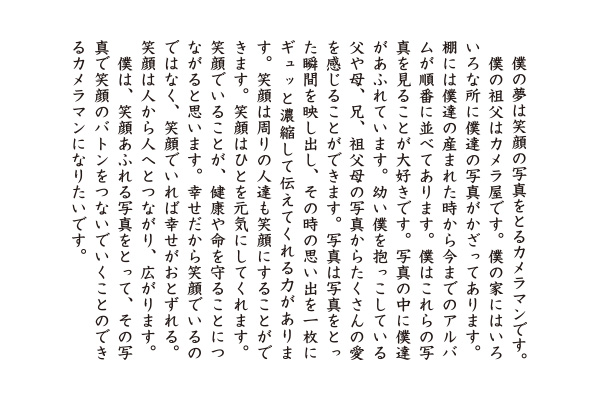 僕の夢は笑顔の写真をとるカメラマンです。
僕の祖父はカメラ屋です。僕の家にはいろ
いろな所に僕達の写真がかざってあります。
棚には僕達の産まれた時から今までのアルバ
ムが順番に並べてあります。僕はこれらの写
真を見ることが大好きです。写真の中に僕達
があふれています。幼い僕を抱っこしている
父や母、兄、祖父母の写真からたくさんの愛
を感じることができます。写真は写真をとっ
た瞬間を映し出し、その時の思い出を一枚に
ギュッと濃縮して伝えてくれる力がありま
す。笑顔は周りの人達も笑顔にすることがで
きます。笑顔はひとを元気にしてくれます。
笑顔でいることが、健康や命を守ることにつ
ながると思います。幸せだから笑顔でいるの
ではなく、笑顔でいれば幸せがおとずれる。
笑顔は人から人へとつながり、広がります。
僕は、笑顔あふれる写真をとって、その写
真で笑顔のバトンをつないでいくことのでき
るカメラマンになりたいです。